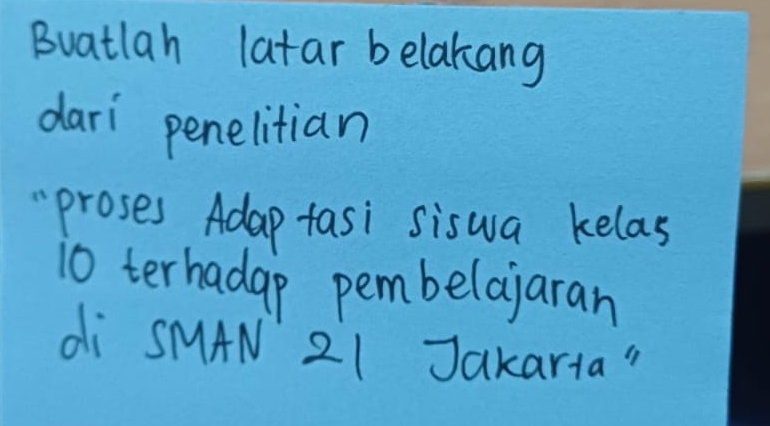 Buatlah latar belakang
dari penelitian
"proses Adaptasi siswa kelas
10 terhadap pembelajaran
di SMAN 21 Jakarta"